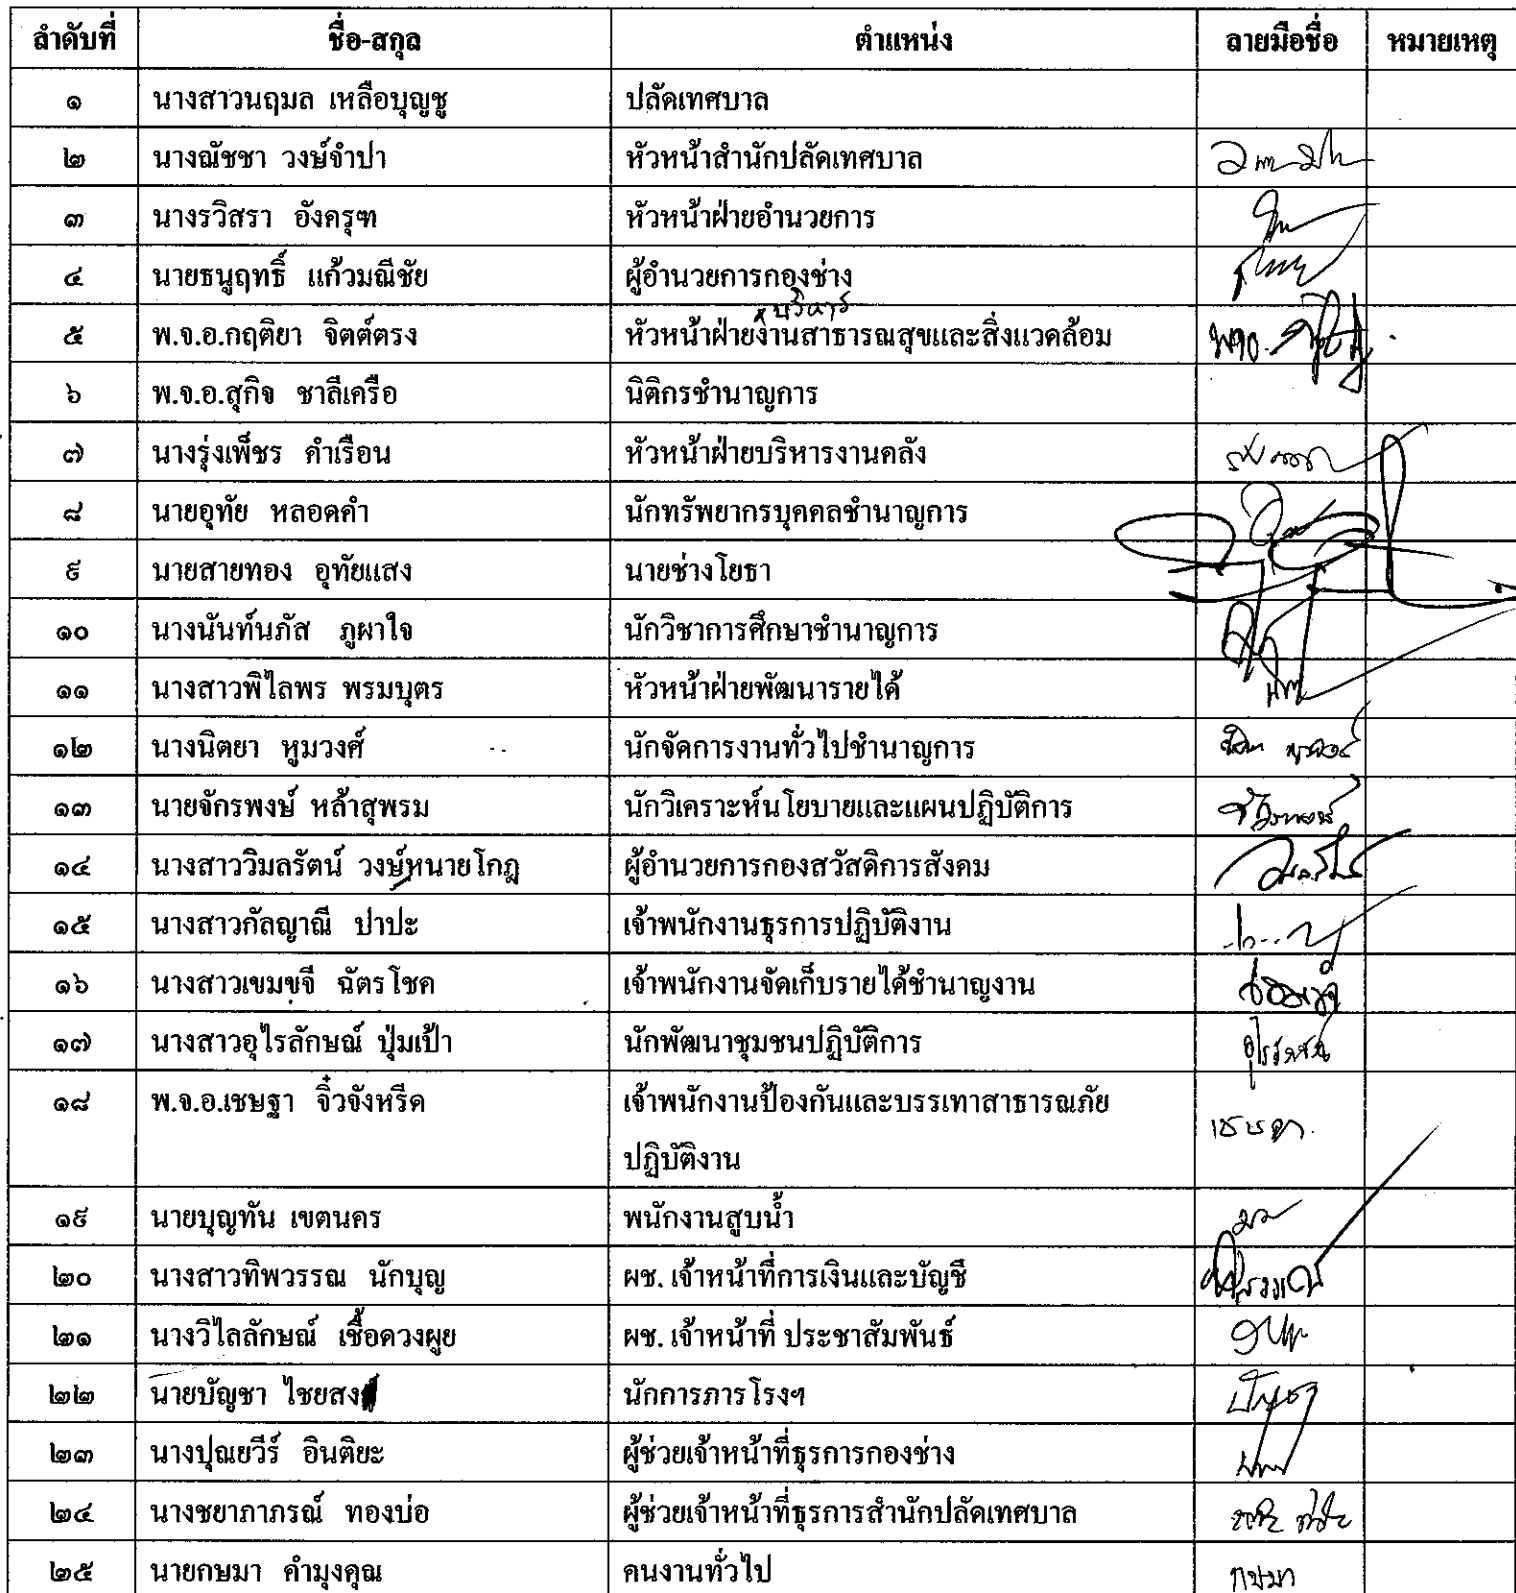 ลำดับที่ ชื่อ-สกุล ตำแหน่ง ลายมือชื่อ หมายเหตุ
๑ นางสาวนฤมล เหลือบุญชู ปลัดเทศบาล
๒ นางณัชชา วงษ์จำปา หัวหน้าสำนักปลัดเทศบาล
๓ นางรวิสรา อังครุฑ หัวหน้าฝ่ายอำนวยการ
๔ นายธนูฤทธิ์ แก้วมณีชัย ผู้อำนวยการกองช่าง
บริหาร
๕ พ.จ.อ.กฤติยา จิตต์ตรง หัวหน้าฝ่ายงานสาธารณสุขและสิ่งแวดล้อม พจอ.
๖ พ.จ.อ.สุกิจ ชาลีเครือ นิติกรชำนาญการ
๗ นางรุ่งเพ็ชร คำเรือน หัวหน้าฝ่ายบริหารงานคลัง
๘ นายอุทัย หลอดคำ นักทรัพยากรบุคคลชำนาญการ
๙ นายสายทอง อุทัยแสง นายช่างโยธา
๑๐ นางนันท์นภัส ภูผาใจ นักวิชาการศึกษาชำนาญการ
๑๑ นางสาวพิไลพร พรมบุตร หัวหน้าฝ่ายพัฒนารายได้
๑๒ นางนิตยา หูมวงศ์ นักจัดการงานทั่วไปชำนาญการ
๑๓ นายจักรพงษ์ หล้าสุพรม นักวิเคราะห์นโยบายและแผนปฏิบัติการ
๑๔ นางสาววิมลรัตน์ วงษ์หนายโกฎ ผู้อำนวยการกองสวัสดิการสังคม
๑๕ นางสาวกัลญาณี ปาปะ เจ้าพนักงานธุรการปฏิบัติงาน
๑๖ นางสาวเขมขจี ฉัตรโชค เจ้าพนักงานจัดเก็บรายได้ชำนาญงาน
๑๗ นางสาวอุไรลักษณ์ ปุ่มเป้า นักพัฒนาชุมชนปฏิบัติการ อุไรลักษณ์
๑๘ พ.จ.อ.เชษฐา จิ๋วจังหรีด เจ้าพนักงานป้องกันและบรรเทาสาธารณภัย
ปฏิบัติงาน เชษฐา
๑๙ นายบุญทัน เขตนคร พนักงานสูบน้ำ
๒๐ นางสาวทิพวรรณ นักบุญ ผช. เจ้าหน้าที่การเงินและบัญชี ทิพวรรณ
๒๑ นางวิไลลักษณ์ เชื้อควงผุย ผช. เจ้าหน้าที่ ประชาสัมพันธ์
๒๒ นายบัญชา ไชยสงค์ นักการภารโรงฯ บัญชา
๒๓ นางปุณยวีร์ อินติยะ ผู้ช่วยเจ้าหน้าที่ธุรการกองช่าง
๒๔ นางชยาภาภรณ์ ทองบ่อ ผู้ช่วยเจ้าหน้าที่ธุรการสำนักปลัดเทศบาล
๒๕ นายกษมา คำมุงคุณ คนงานทั่วไป กษมา